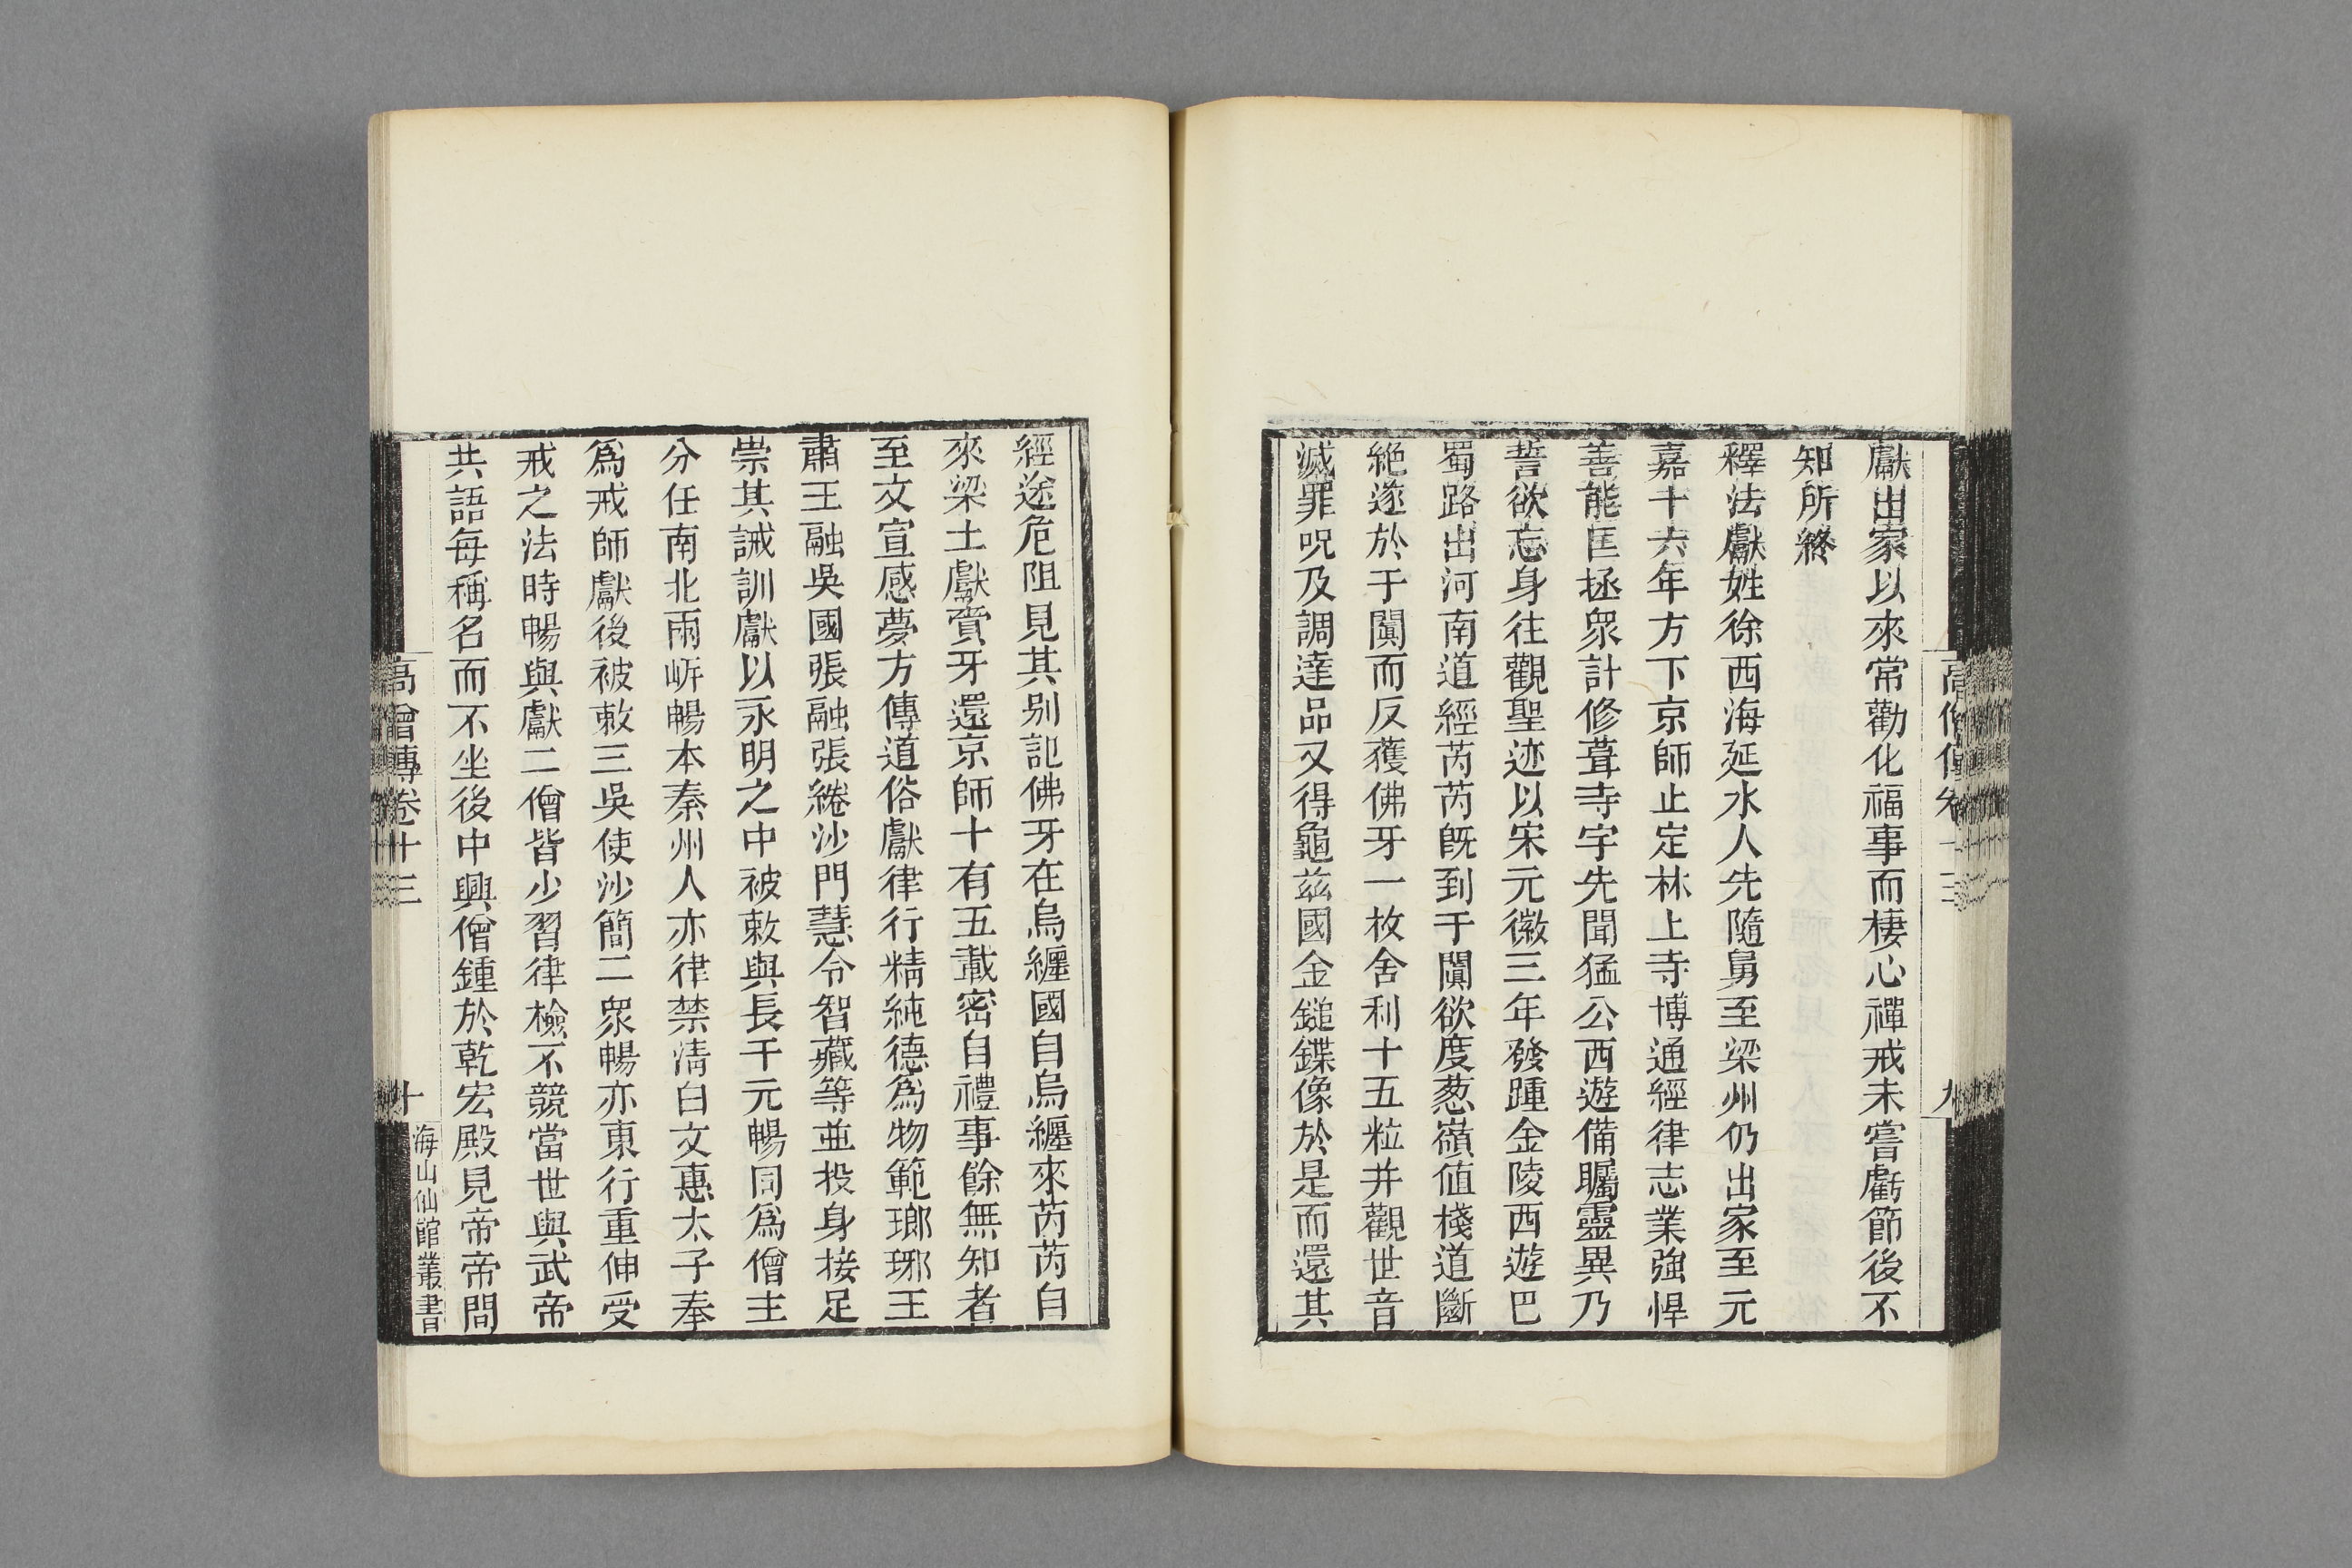 獻出家以來常勸化福事而棲心禪戒未嘗虧節後不
知所終
釋法獻姓徐西海延水人先隨舅至梁州仍出家至元
嘉十六年方下京師止定林上寺博通經律志業強悍
善能匡拯衆計修葺寺宇先聞猛公西遊備矚靈異乃
誓欲忘身往觀聖迹以宋元徽三年發踵金陵西遊巴
蜀路出河南道經芮芮旣到于闐欲度葱嶺値棧道斷
絶遂於于闐而反獲佛牙一枚舍利十五粒并觀世音
滅罪呪及調達品又得龜茲國金鎚鍱像於是而還其
高僧傳卷十三
九
經途危阻見其别記佛牙在烏纒國自烏纒來芮芮自
來梁土獻賫牙還京師十有五載密自禮事餘無知者
至文宣感夢方傳道俗獻律行精純德爲物範瑯琊王
肅王融吳國張融張綣沙門慧令智藏等並投身接足
崇其誡訓獻以永明之中被敕與長干元暢同爲僧主
分任南北兩岍暢本秦州人亦律禁清白文惠太子奉
爲戒師獻後被敕三吳使沙簡二衆暢亦東行重伸受
戒之法時暢與獻二僧皆少習律檢不競當世與武帝
共語每稱名而不坐後中興僧鍾於乾宏殿見帝帝問
高僧傳卷十三
十
海山仙館叢書